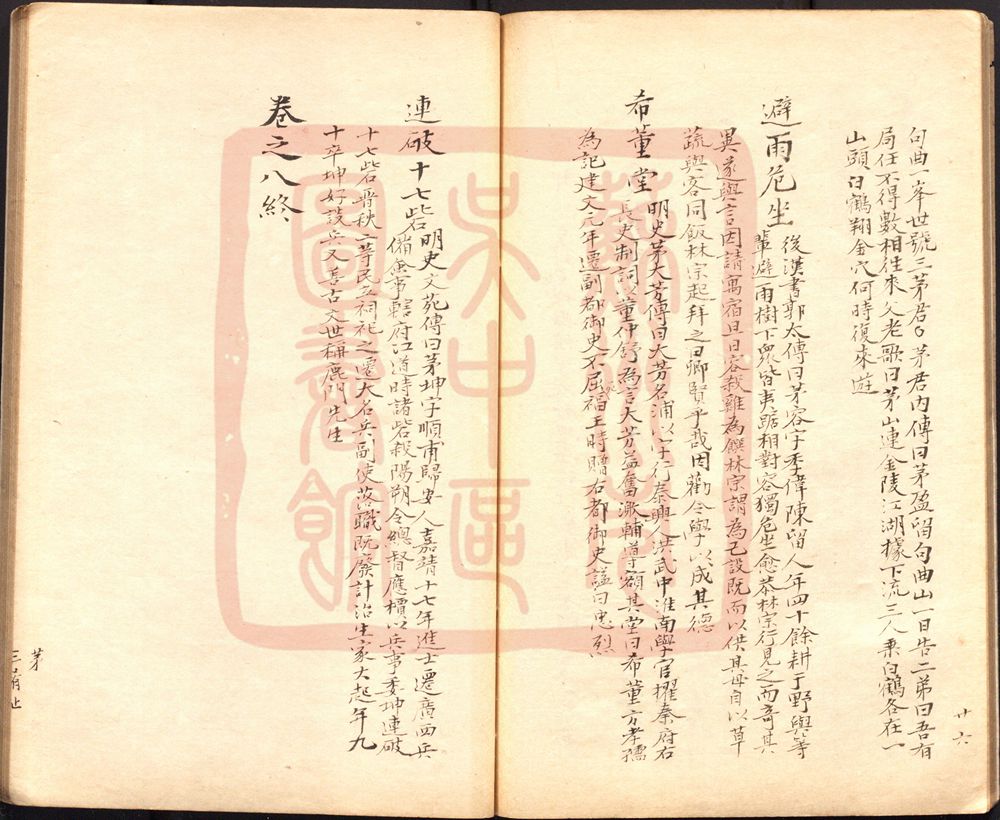 句曲一峯世號三茅君。茅君內傳曰茅盈留句曲山一日告二弟曰吾有
局任不得數相往來父老歌曰茅山連金陵江湖據下流三人乗白鶴各在一
山頭白鶴翔金穴何時復來遊
避雨危坐 後漢書郭太傳曰茅容字季偉陳留人年四十餘耕于野與等
輩避雨樹下眾皆夷踞相對容獨危坐愈恭林宗行見之而奇其
異遂與言因請寓宿旦日容殺雞為饌林宗謂為己設既而以供其母自以草
蔬與客同飯林宗起拜之曰卿賢乎哉因勸令學以成其德
希董堂 明史茅大芳傳曰大芳名浦以字行泰興人洪武中淮南學官擢秦府右
長史制詞以董仲舒為言大芳益奮激輔導額其堂曰希董方孝孺
為記建文元年遷副都御史不屈死福王時贈右都御史諡曰忠烈
連破十七砦 明史文苑傳曰茅坤字順甫歸安人嘉靖十七年進士遷廣西兵
備僉事轄府江道時諸砦殺陽朔令總督應檟以兵事委坤連破
十七砦晉秩二等民立祠祀之遷大名兵副使落職既廢計治生家大起年九
十卒坤好談兵又善古文世稱鹿門先生
卷之八終
廿六
茅
吳中區
圖書館